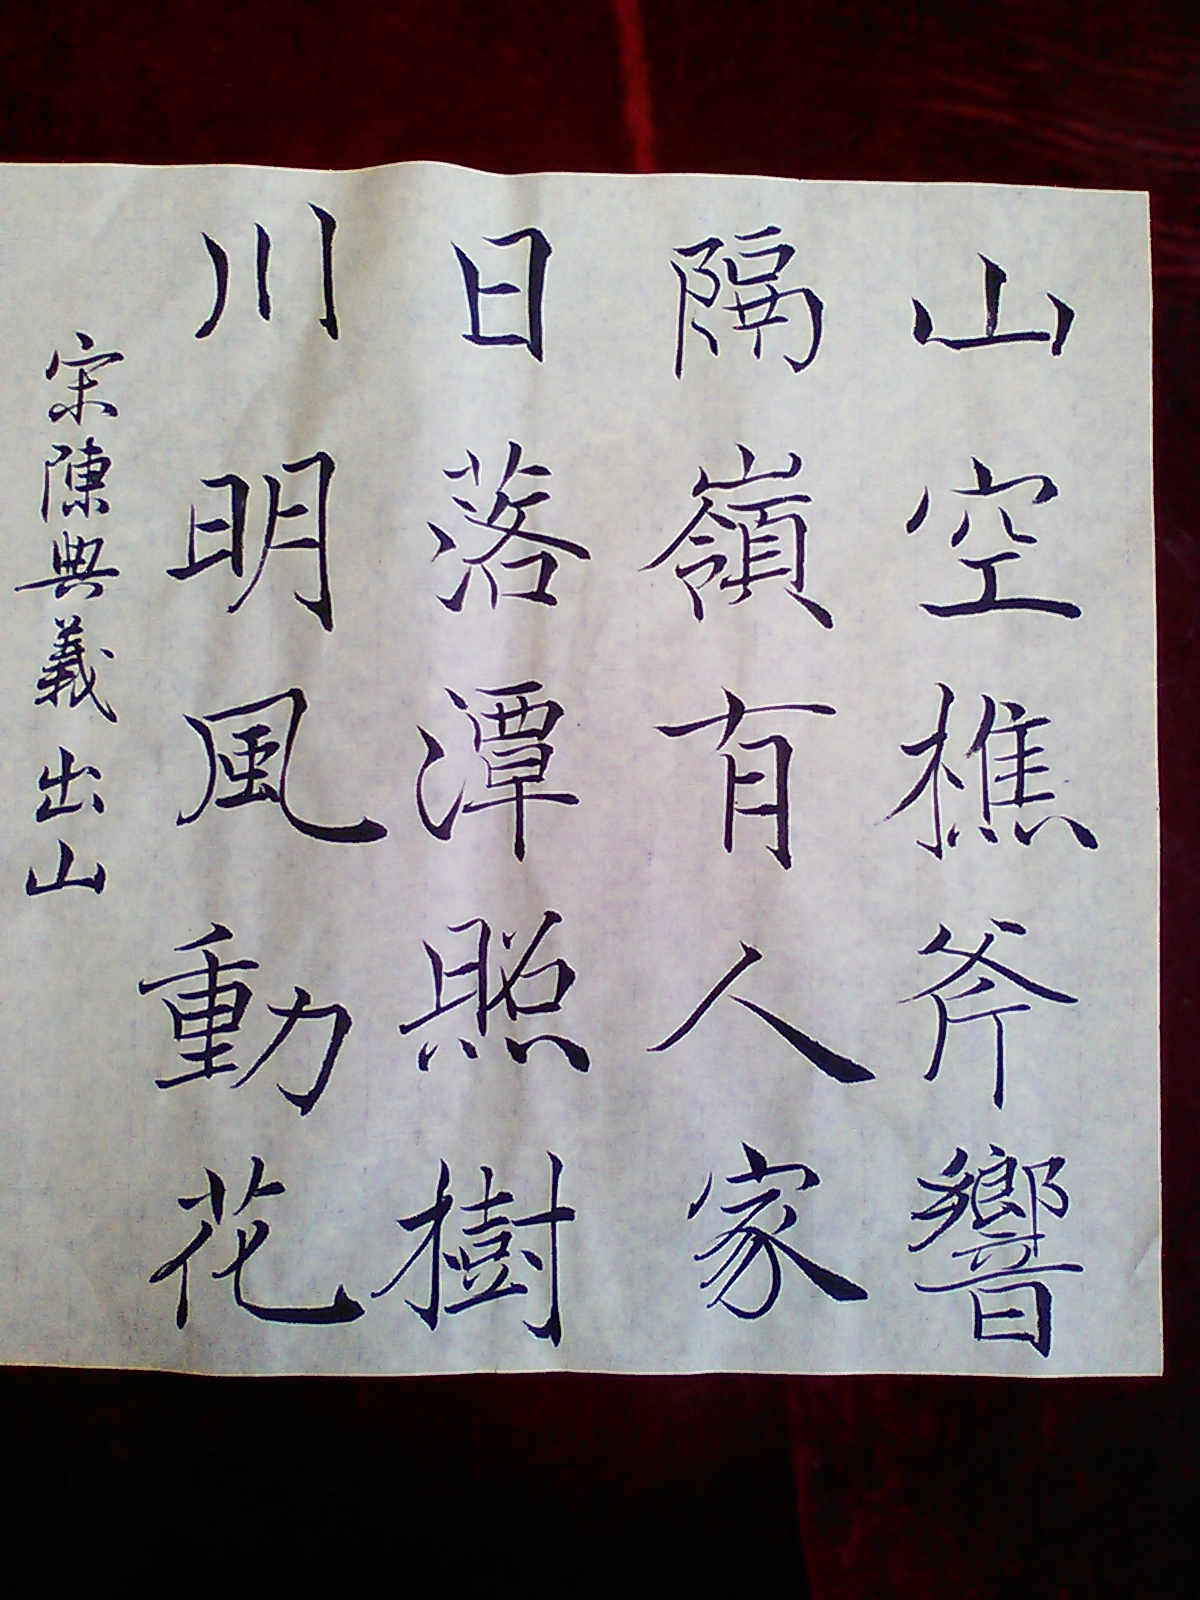 山空樵斧響
隔嶺有人家
日落潭照樹
川明風動花
宋陳與義出山